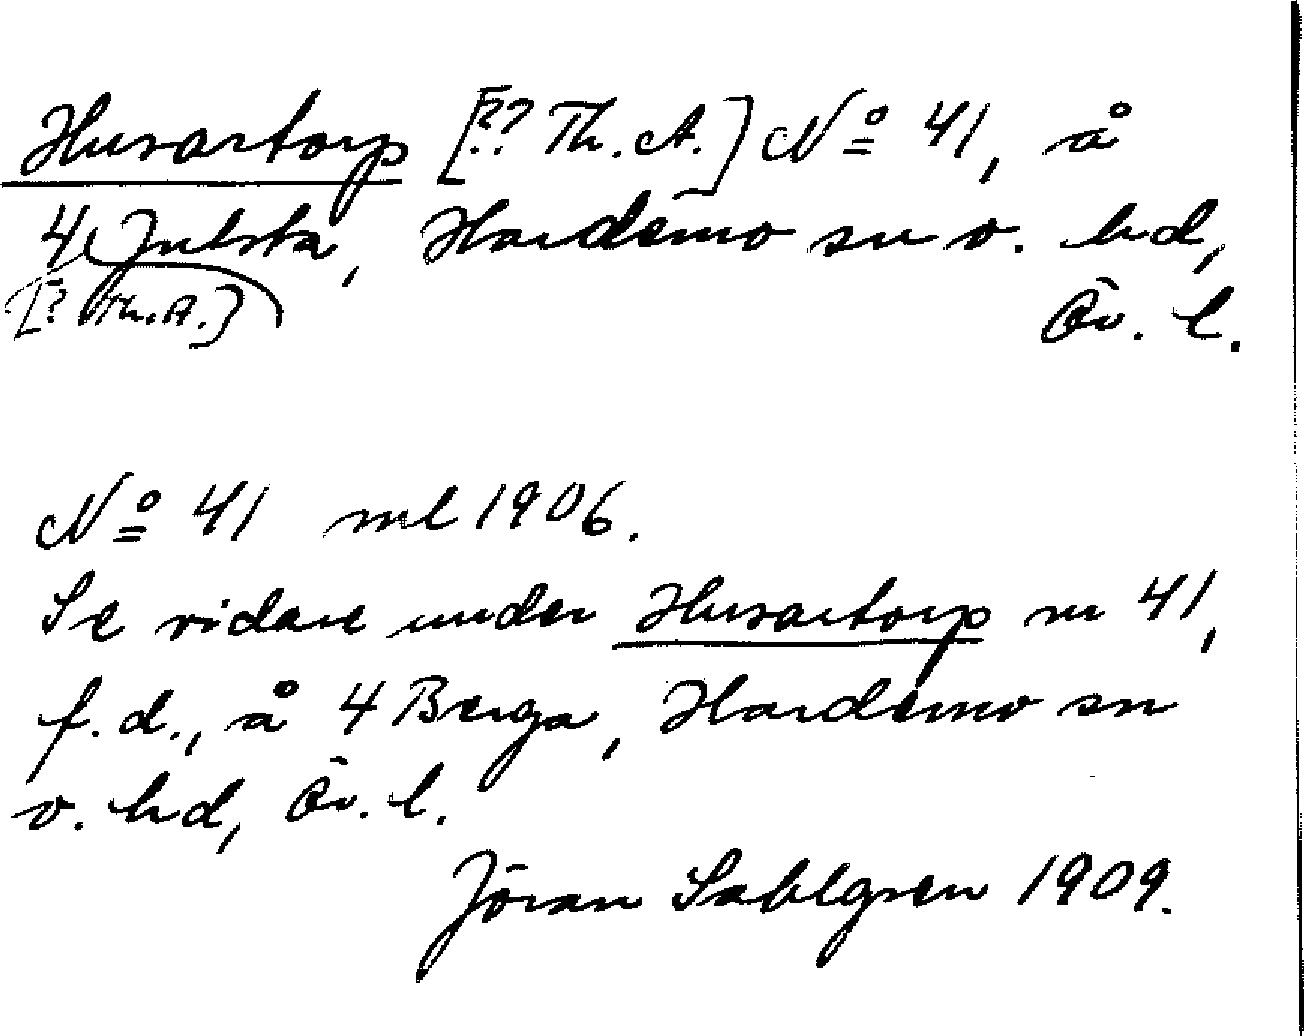 Husartorp [?? Th. A.] Nº 41, å
4 Julsta, Hardemo sn o. hd,
[? Th. A.]
Ör. l.
Nº 41 ml 1906.
Se vidare under Husartorp nr 41,
f.d., å 4 Berga, Hardemo sn
o. hd, Ör. l.
Jöran Sahlgren 1909.